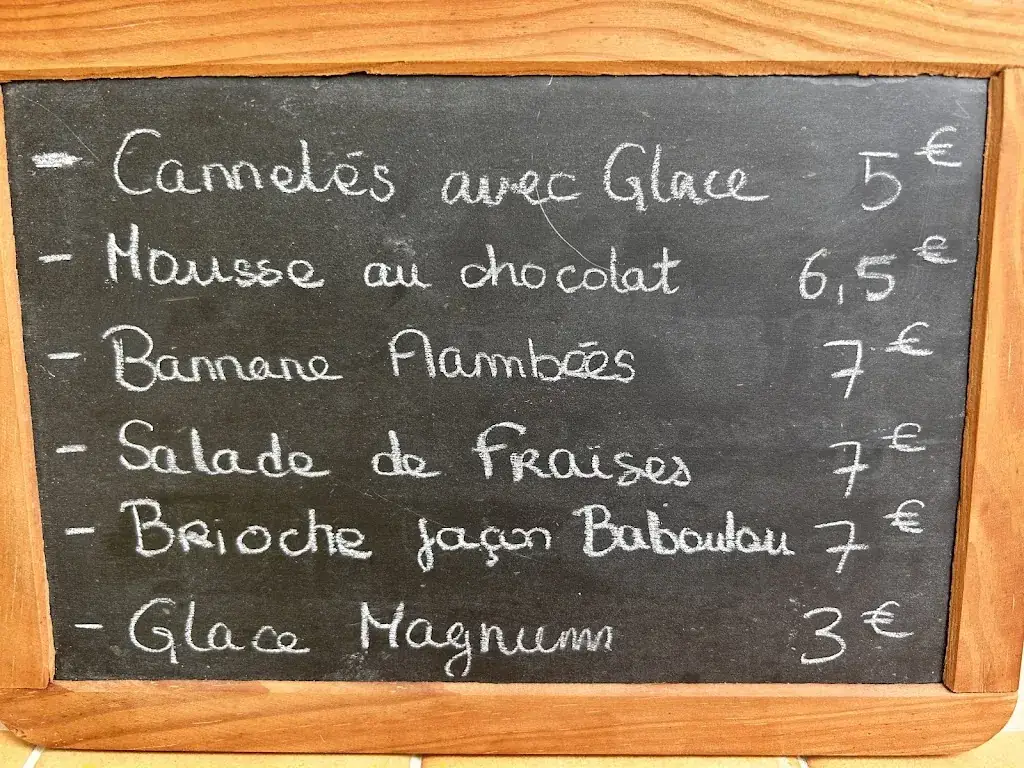 - Cannelés avec Glace 5€
- Mousse au chocolat 6,5€
- Bannane Flambées 7€
- Salade de Fraises 7€
- Brioche façon Baboulou 7€
- Glace Magnum 3€